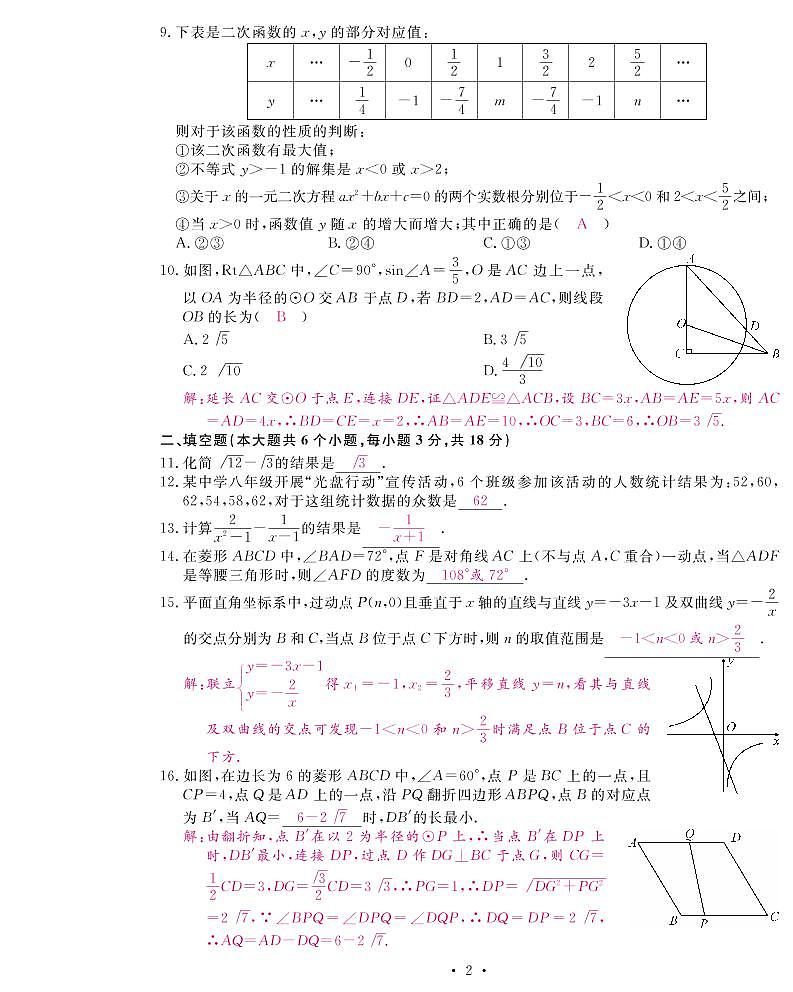 9. 下表是二次函数的 x,y 的部分对应值:
x … -1/2 0 1/2 1 3/2 2 5/2 …
y … 1/4 -1 -7/4 m -7/4 -1 n …
则对于该函数的性质的判断:
①该二次函数有最大值;
②不等式 y>-1 的解集是 x<0 或 x>2;
③关于 x 的一元二次方程 ax²+bx+c=0 的两个实数根分别位于-1/2<x<0 和 2<x<5/2之间;
④当 x>0 时,函数值 y 随 x 的增大而增大;其中正确的是( A )
A. ②③ B. ②④ C. ①③ D. ①④
10. 如图,Rt△ABC 中,∠C=90°,sin∠A=3/5,O 是 AC 边上一点,
以 OA 为半径的⊙O 交 AB 于点 D,若 BD=2,AD=AC,则线段
OB 的长为( B )
A. 2√5 B. 3√5
C. 2√10 D. 4√10/3
A
O
D
C
B
解:延长 AC 交⊙O 于点 E,连接 DE,证△ADE≌△ACB,设 BC=3x,AB=AE=5x,则 AC
=AD=4x,∴BD=CE=x=2,∴AB=AE=10,∴OC=3,BC=6,∴OB=3√5.
二、填空题(本大题共 6 个小题,每小题 3 分,共 18 分)
11. 化简 √12-√3的结果是 √3 .
12. 某中学八年级开展“光盘行动”宣传活动,6 个班级参加该活动的人数统计结果为:52,60,
62,54,58,62,对于这组统计数据的众数是 62 .
13. 计算2/(x²-1)-1/(x-1)的结果是 -1/(x+1) .
14. 在菱形 ABCD 中,∠BAD=72°,点 F 是对角线 AC 上(不与点 A,C 重合)一动点,当△ADF
是等腰三角形时,则∠AFD 的度数为 108°或 72° .
15. 平面直角坐标系中,过动点 P(n,0)且垂直于 x 轴的直线与直线 y=-3x-1 及双曲线 y=-2/x
的交点分别为 B 和 C,当点 B 位于点 C 下方时,则 n 的取值范围是 -1<n<0 或 n>2/3 .
解:联立{y=-3x-1 y=-2/x 得 x₁=-1,x₂=2/3,平移直线 y=n,看其与直线
及双曲线的交点可发现-1<n<0 和 n>2/3时满足点 B 位于点 C 的
下方.
y
O
x
16. 如图,在边长为 6 的菱形 ABCD 中,∠A=60°,点 P 是 BC 上的一点,且
CP=4,点 Q 是 AD 上的一点,沿 PQ 翻折四边形 ABPQ,点 B 的对应点
为 B′,当 AQ= 6-2√7 时,DB′的长最小.
解:由翻折知,点 B′在以 2 为半径的⊙P 上,∴当点 B′在 DP 上
时,DB′最小,连接 DP,过点 D 作 DG⊥BC 于点 G,则 CG=
1/2CD=3,DG=√3/2CD=3√3,∴PG=1,∴DP=√DG²+PG²
=2√7,∵∠BPQ=∠DPQ=∠DQP,∴DQ=DP=2√7,
∴AQ=AD-DQ=6-2√7.
A Q D
B P C
• 2 •